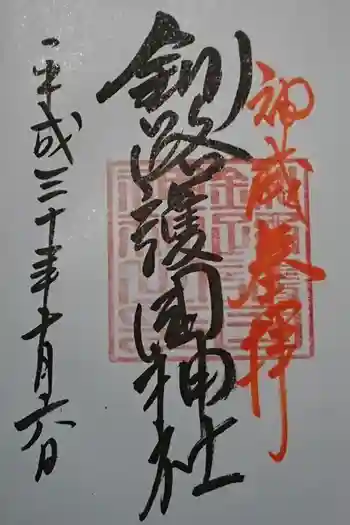 神威奉拝
釧路護國神社
平成三十年十月六日